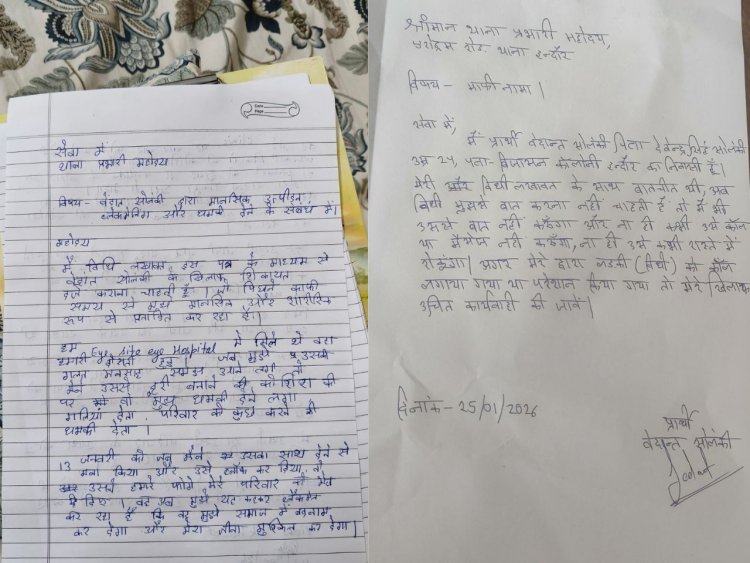 Date
Page
सेवा में
थाना प्रभारी महोदय
विषय - वेदांत सोलंकी द्वारा मानसिक उत्पीड़न,
ब्लैकमेलिंग और धमकी देने के संबंध में।
महोदय
में विधि लखावत इस पत्र के माध्यम से
वेदांत सोलंकी के खिलाफ शिकायत
दर्ज कराना चाहती हैं। जो पिछले काफी
समय से मुझे मानसिक और शारीरिक
रूप से प्रताड़ित कर रहा है।
हम Eye site eye Hospital में मिले थे वहा
हमारी दोस्ती हुई। जब मुझे उसके
गलत मनसूबे समझ आने लगे तो
मैंने उससे दूरी बनाने की कोशिश की
पर वो मुझे धमकी देने लगा
गालियां देता, परिवार को कुछ करने की
धमकी देता।
13 जनवरी को जब मैंने उसका साथ देने से
मना किया और उसे ब्लॉक कर दिया, तो
उसने हमारे फोटो मेरे परिवार को भेज
दिए। वह अब मुझे यह कहकर ब्लैकमेल
कर रहा है कि वह मुझे समाज में बदनाम
कर देगा और मेरा जीना मुश्किल कर देगा।
श्रीमान थाना प्रभारी महोदय,
एरोड्रम रोड थाना इन्दौर
विषय - माफी नामा।
सेवा में,
मैं प्रार्थी वेदान्त सोलंकी पिता देवेन्द्र सिंह सोलंकी
उम्र 24, पता- कॉलोनी इन्दौर का निवासी हूँ।
मेरी विधी लखावत के साथ बातचीत थी, अब
विधी मुझसे बात करना नहीं चाहती है तो मैं भी
उससे बात नहीं करूँगा और ना ही कभी उसे कॉल
या मैसेज नहीं करूँगा, ना ही उसे कभी रास्ते में
रोकूंगा। अगर मेरे द्वारा लडकी (विधी) को कॉल
लगाया गया या परेशान किया गया तो मेरे खिलाफ
उचित कार्यवाही की जावें।
दिनांक - 25/01/2026
प्रार्थी
वेदान्त सोलंकी